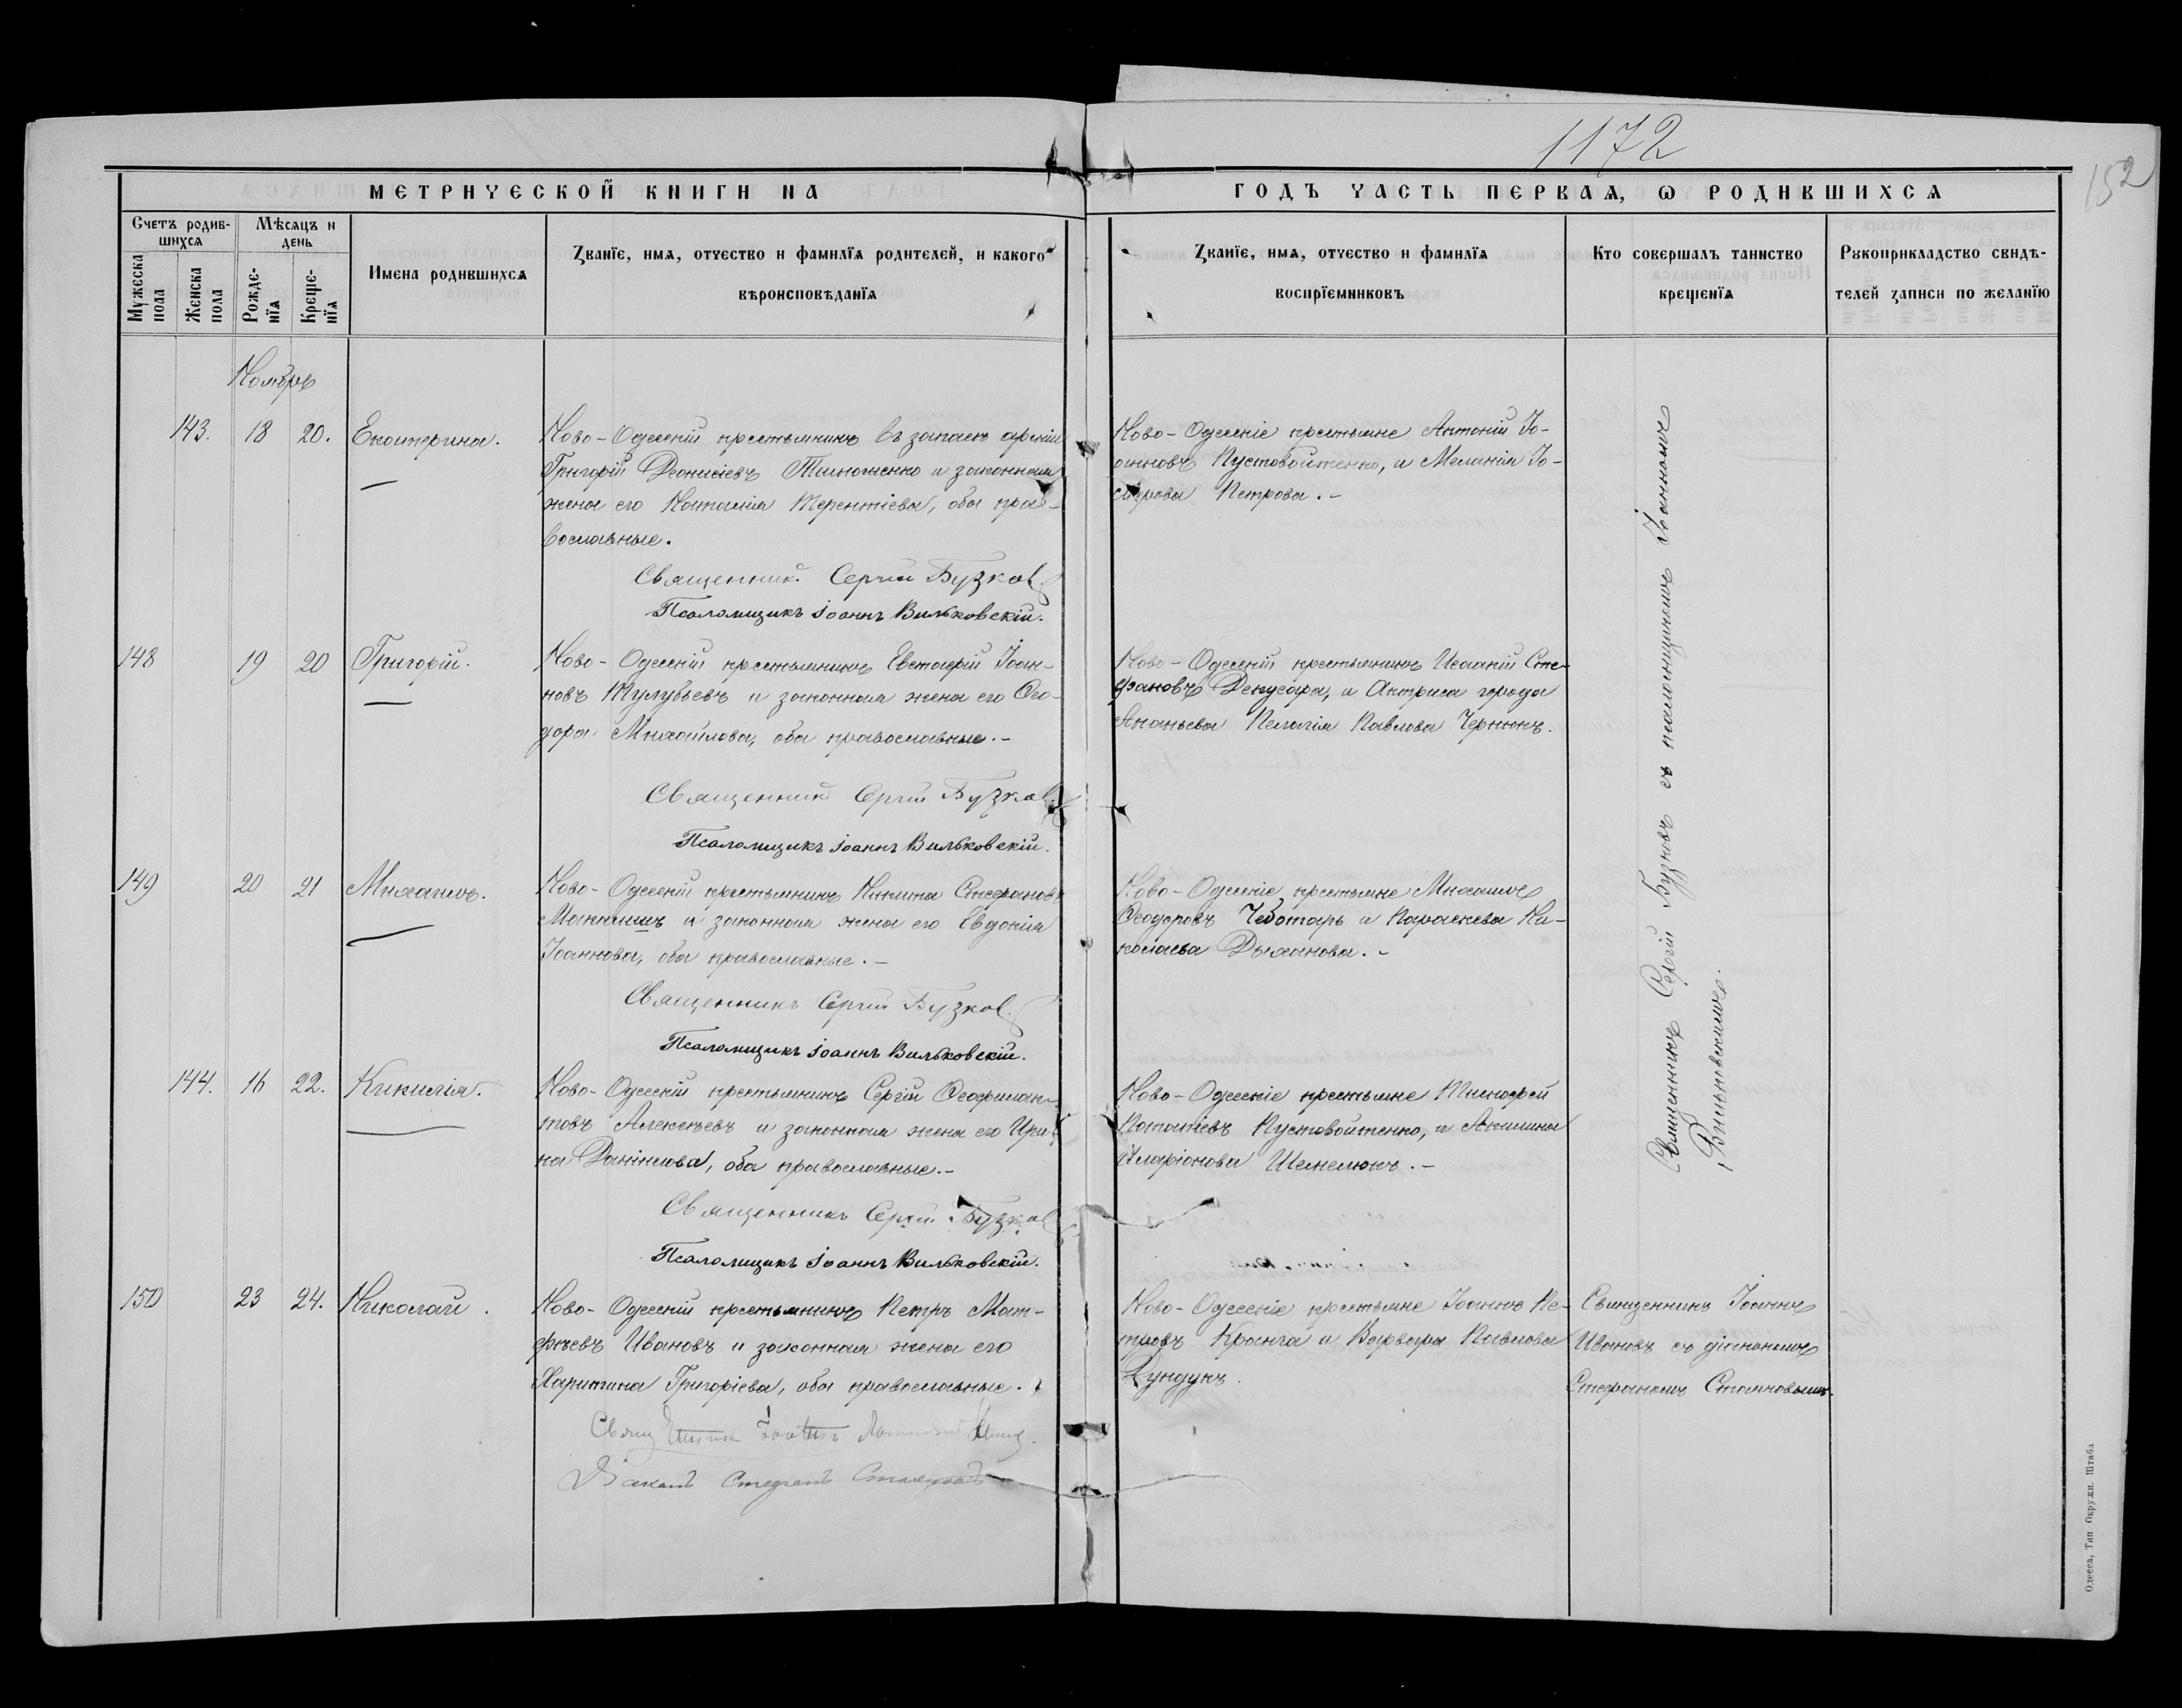 1172
152
МЕТРИЧЕСКОЙ КНИГИ НА
ГОДЪ ЧАСТЬ ПЕРВАЯ, Ѡ РОДИВШИХСЯ
Счетъ родив-
шихся
Мужеска
пола
Женска
пола
Мѣсяцъ и
день
Рожде-
нїя
Креще-
нїя
Имена родившихся
Званїе, имя, отчество и фамилїя родителей, и какого
вѣроисповѣданїя
Званїе, имя, отчество и фамилїя
воспрїемниковъ
Кто совершалъ таинство
крещенїя
Рукоприкладство свидѣ-
телей записи по желанїю
Ноябрь
143. 18 20. Екатерина.
Ново-Одесскій крестьянинъ въ запасѣ арміи
Григорій Діонисіевъ и законная
жена его Наталія Терентіева, оба пра-
вославные.
Священник Сергій Бузков
Псаломщикъ Іоаннъ Вильковскій.
Ново-Одесскіе крестьяне Антоній Іо-
анновъ Пустовойтенко, и Меланія
Петрова.-
148 19 20 Григорій.
Ново-Одесскій крестьянинъ Евстафій Іоан-
новъ Тулубьевъ и законная жена его Ѳео-
дора Михайлова, оба православные.-
Священник Сергій Бузков
Псаломщикъ Іоаннъ Вильковскій.
Ново-Одесскій крестьянинъ Исаакій Сте-
фановъ и Актриса города
Ананьева Пелагія Павлова Чернюкъ.
149 20 21 Михаилъ.
Ново-Одесскій крестьянинъ Никита Стефановъ
и законная жена его Евдокія
Іоаннова, оба православные.-
Священникъ Сергій Бузков
Псаломщикъ Іоаннъ Вильковскій.
Ново-Одесскіе крестьяне Михаилъ
Ѳеодоровъ Чеботарь и Параскева Ни-
колаева Дыханова.-
144. 16 22. Кикилія.
Ново-Одесскій крестьянинъ Сергій Ѳеофилак-
товъ Алексѣевъ и законная жена его Ири-
на Даніилова, оба православные.-
Священникъ Сергій Бузков
Псаломщикъ Іоаннъ Вильковскій.
Ново-Одесскіе крестьяне Тимофей
Потапіевъ Пустовойтенко, и Акилина
Иларіонова Шемелюкъ.-
Священникъ Сергій Бузковъ съ псаломщикомъ Іоанномъ
Вильковскимъ.
150 23 24. Николай.
Ново-Одесскій крестьянинъ Петръ Мат-
фѣевъ Ивановъ и законная жена его
Харитина Григоріева, оба православные.
Діаконъ Стефанъ Стояновъ
Ново-Одесскіе крестьяне Іоаннъ Пе-
тровъ Кранга и Варвара Павлова
Дундукъ.
Священникъ Іоаннъ
Ивановъ съ діакономъ
Стефаномъ Стояновымъ.
Одесса, Тип Окружн. Штаба